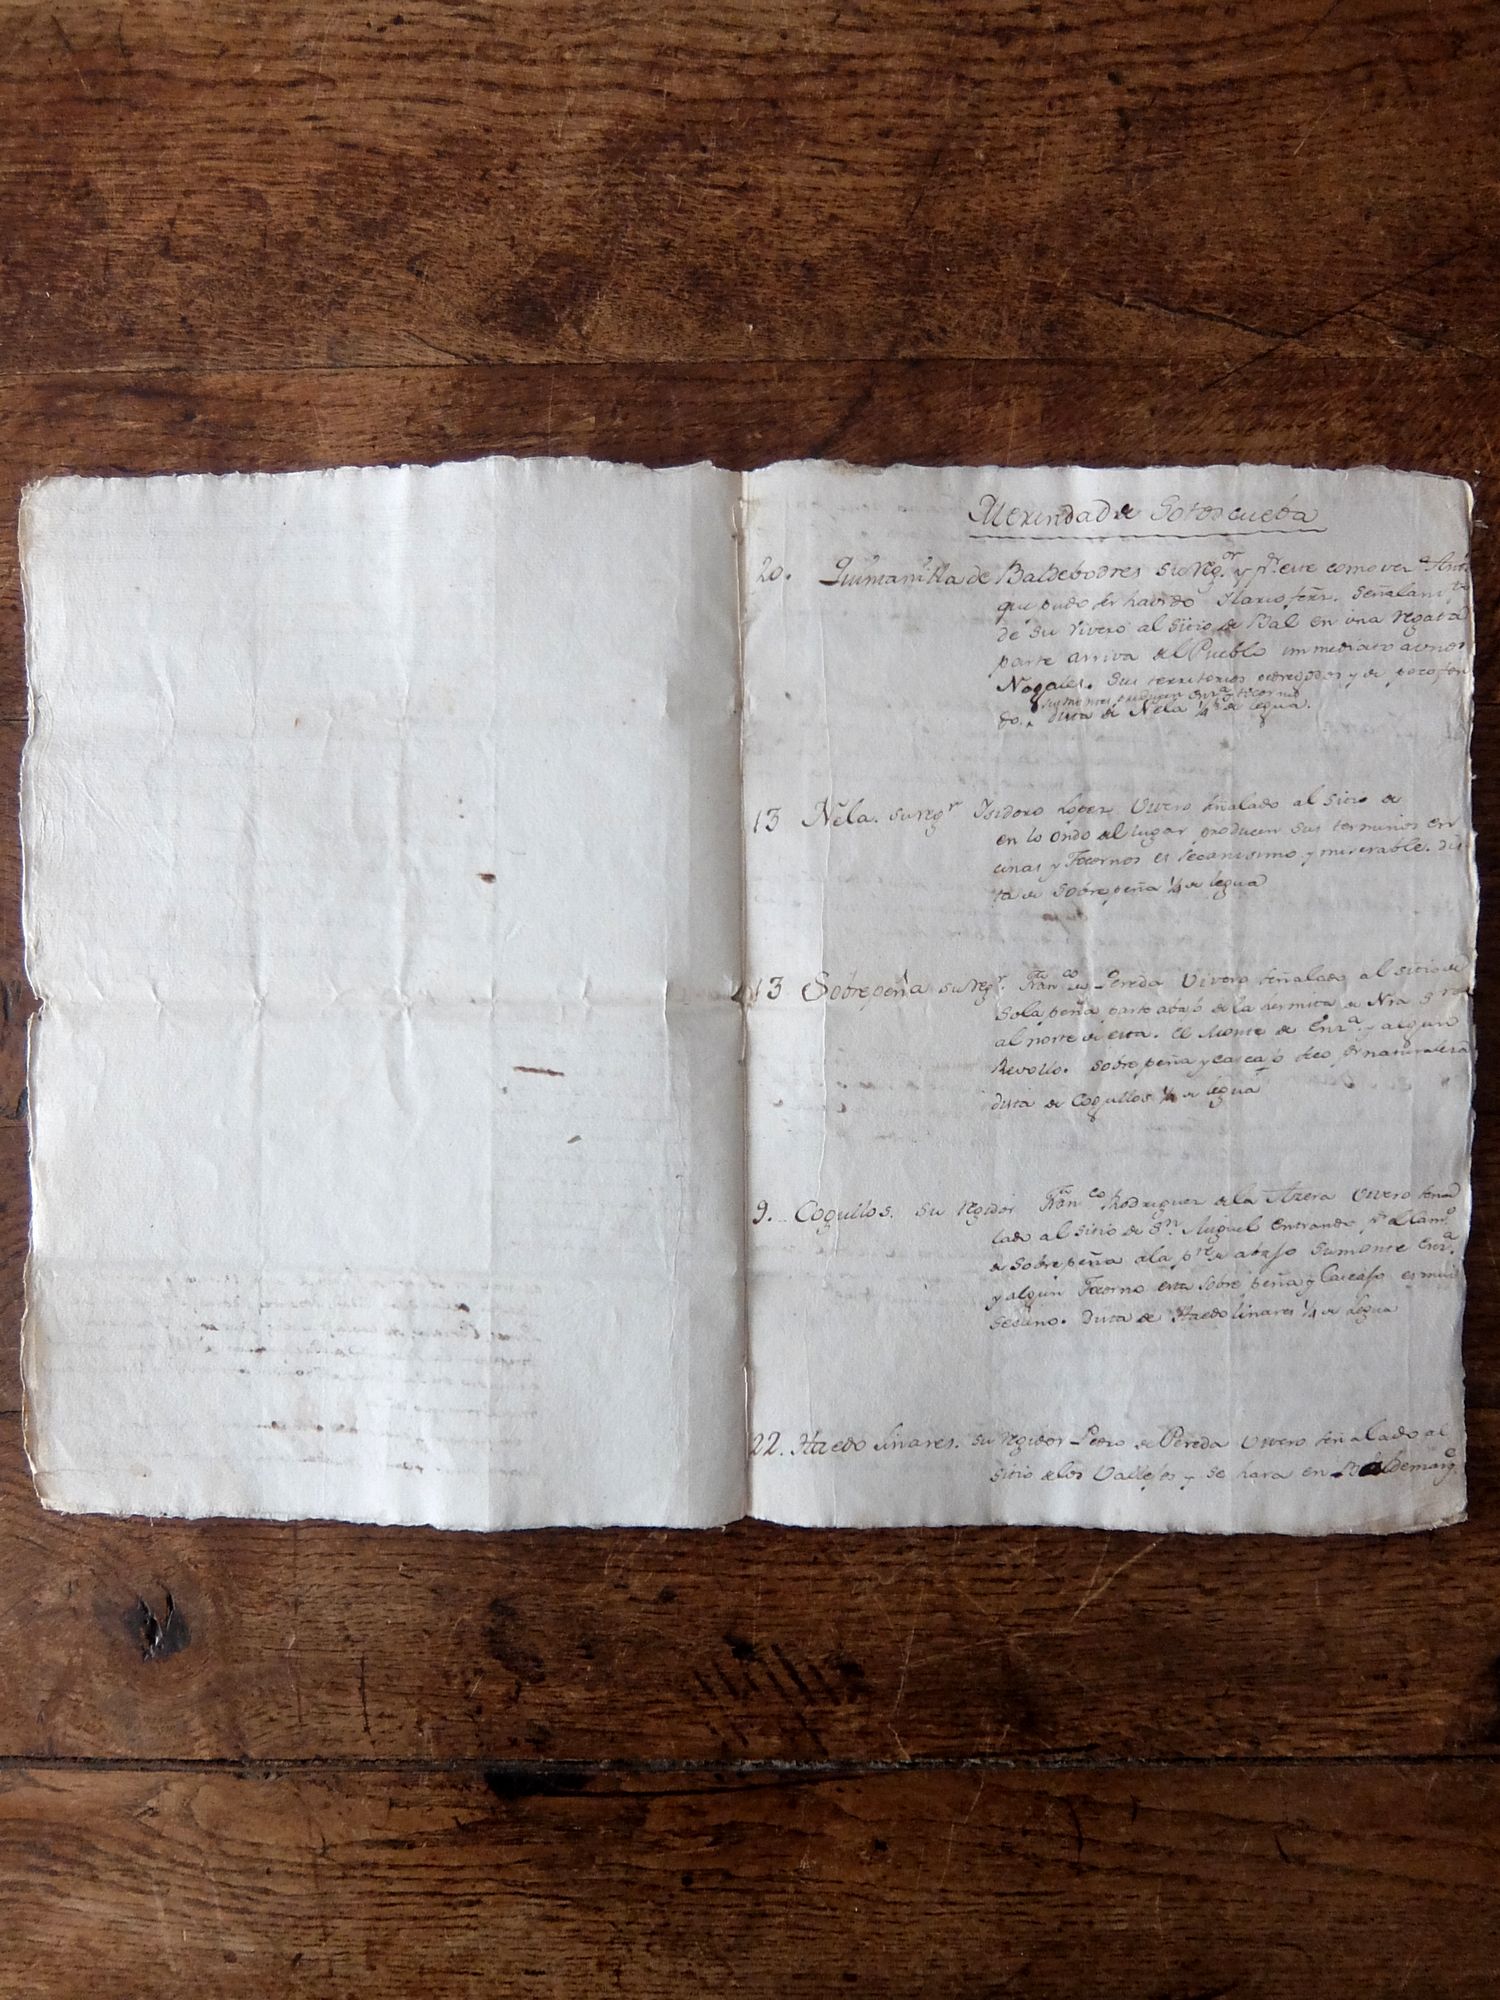 Merindad de Sotoscueba
20. Quintanilla de Baldebodres su regor y pr este como verº Antº
que pudo ser havido Ilario fern. Señalamto
de su vivero al sitio de Bal en una regata
parte arriva del Pueblo immediato a unos
Nogales. Sus territorios pedregosos y de poco fon
sus montes producen enza tocorno
do. dista de Nela 1/4 de legua.
13 Nela. su regr Isidoro Lopez Vivero señalado al sitio de
en lo ondo del lugar producen sus terminos en
cinas y Tocornos es secanisimo y miserable. dis
ta de Sobrepeña 1/4 de legua
13 Sobrepeña su regr. Franco de Pereda Vivero señalado al sitio de
Sola peña parte abajo de la hermita de Nra Sra
al norte de esta. el Monte de Enza. y algun
Revollo. Sobre peña y cascajo seco pr naturaleza
dista de Cogullos 1/4 de legua
9. Cogullos. su regidor Franco Rodriguez de la Azera Vivero señal
lado al sitio de Sn Miguel entrando pr el camº
de Sobrepeña a la pte de abajo su monte Enza.
y algun Tocorno esta sobre peña y Cascajo es mui
secano. Dista de Haedo linares 1/4 de legua
22. Haedo linares. su regidor Pedro de Pereda Vivero señalado al
sitio de los Vallejos y se hara en Baldemarq.